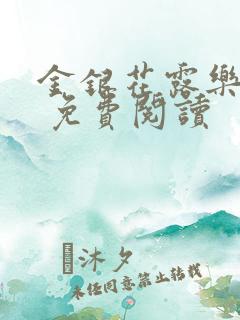 金銀花露樂
免費閱讀
沐夕
未经同意禁止转载